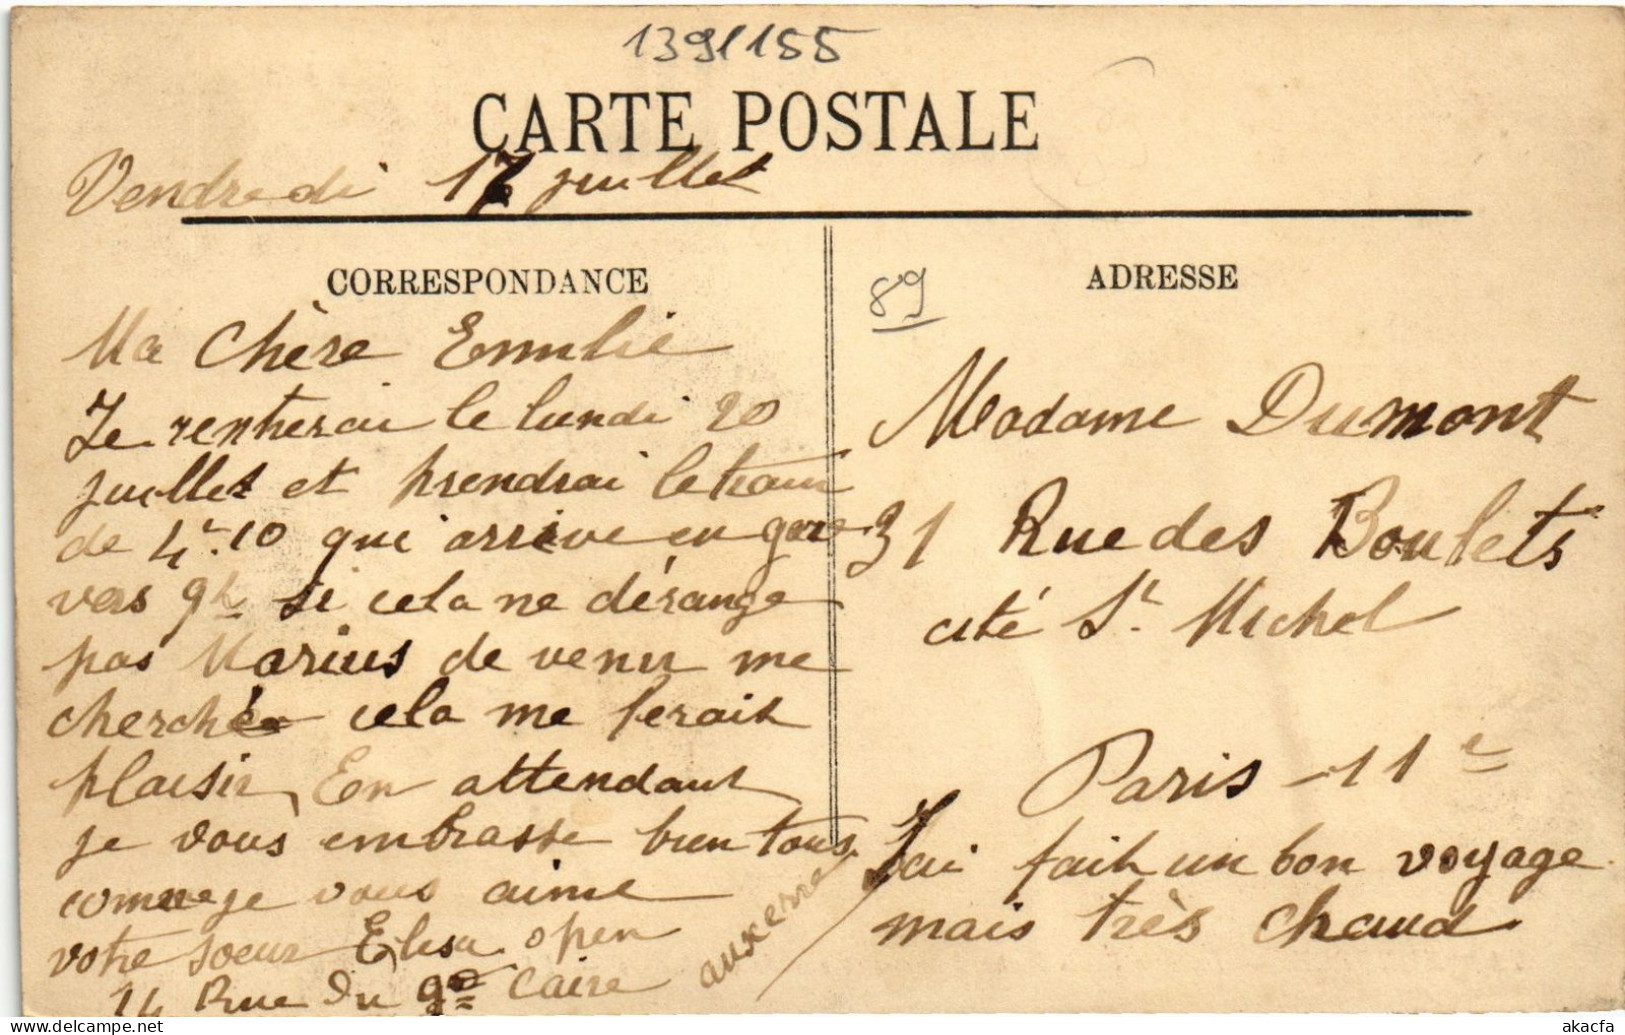 1391155
CARTE POSTALE
Vendredi 17 juillet
CORRESPONDANCE
Ma Chère Emilie
Je rentrerai le lundi 20
juillet et prendrai le train
de 4h.10 qui arrive en gare
vers 9h si cela ne dérange
pas Marius de venir me
cherché cela me ferait
plaisir, En attendant
je vous embrasse bien tous
comme je vous aime
votre soeur Elisa
14 Rue du Gd Caire
auxerre
89
ADRESSE
Madame Dumont
31 Rue des Boulets
cité St. Michel
Paris - 11e
J'ai fait un bon voyage
mais très chaud
akacfa